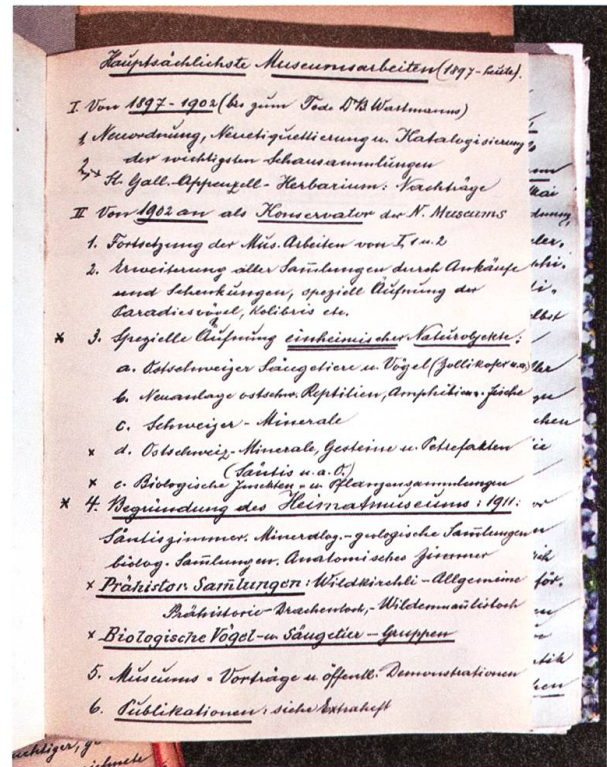 Hauptsächlichste Museumsarbeiten (1897 - heute).
I. Von 1897 - 1902 (bis zum Tode Dr B. Wartmanns)
1. Neuordnung, Neuetiquettierung u. Katalogisierung
der wichtigsten Schausammlungen
2. x St. Gall. Appenzell - Herbarium: Nachträge
II Von 1902 an als Konservator des N. Museums
1. Fortsetzung der Mus. Arbeiten von I, 1 u. 2
2. Erweiterung aller Sam̄lungen durch Ankäufe
und Schenkungen, speziell Äufnung der
Paradiesvögel, Kolibris etc.
x 3. Spezielle Äufnung einheimischer Naturobjekte:
a. Ostschweizer Säugetiere u. Vögel (Zollikofer u.a.)
b. Neuanlage ostschw. Reptilien, Amphibien - Fische
c. Schweizer - Minerale
x d. Ostschweiz - Minerale, Gesteine u. Petrefakten
(Säntis u.a.O.)
x e. Biologische Insekten - u. Pflanzensammlungen
x 4. Begründung des Heimatmuseums: 1911:
Säntiszimmer. Mineralog. - geologische Sam̄lungen
biolog. Sam̄lungen. Anatomisches Zimmer
x Prähistor. Sam̄lungen: Wildkirchli - Allgemeine
Prähistorie - Drachenloch, - Wildenmannlisloch
x Biologische Vögel - u. Säugetier - Gruppen
5. Museums - Vorträge u. öffentl. Demonstrationen
6. Publikationen: siehe Extraheft